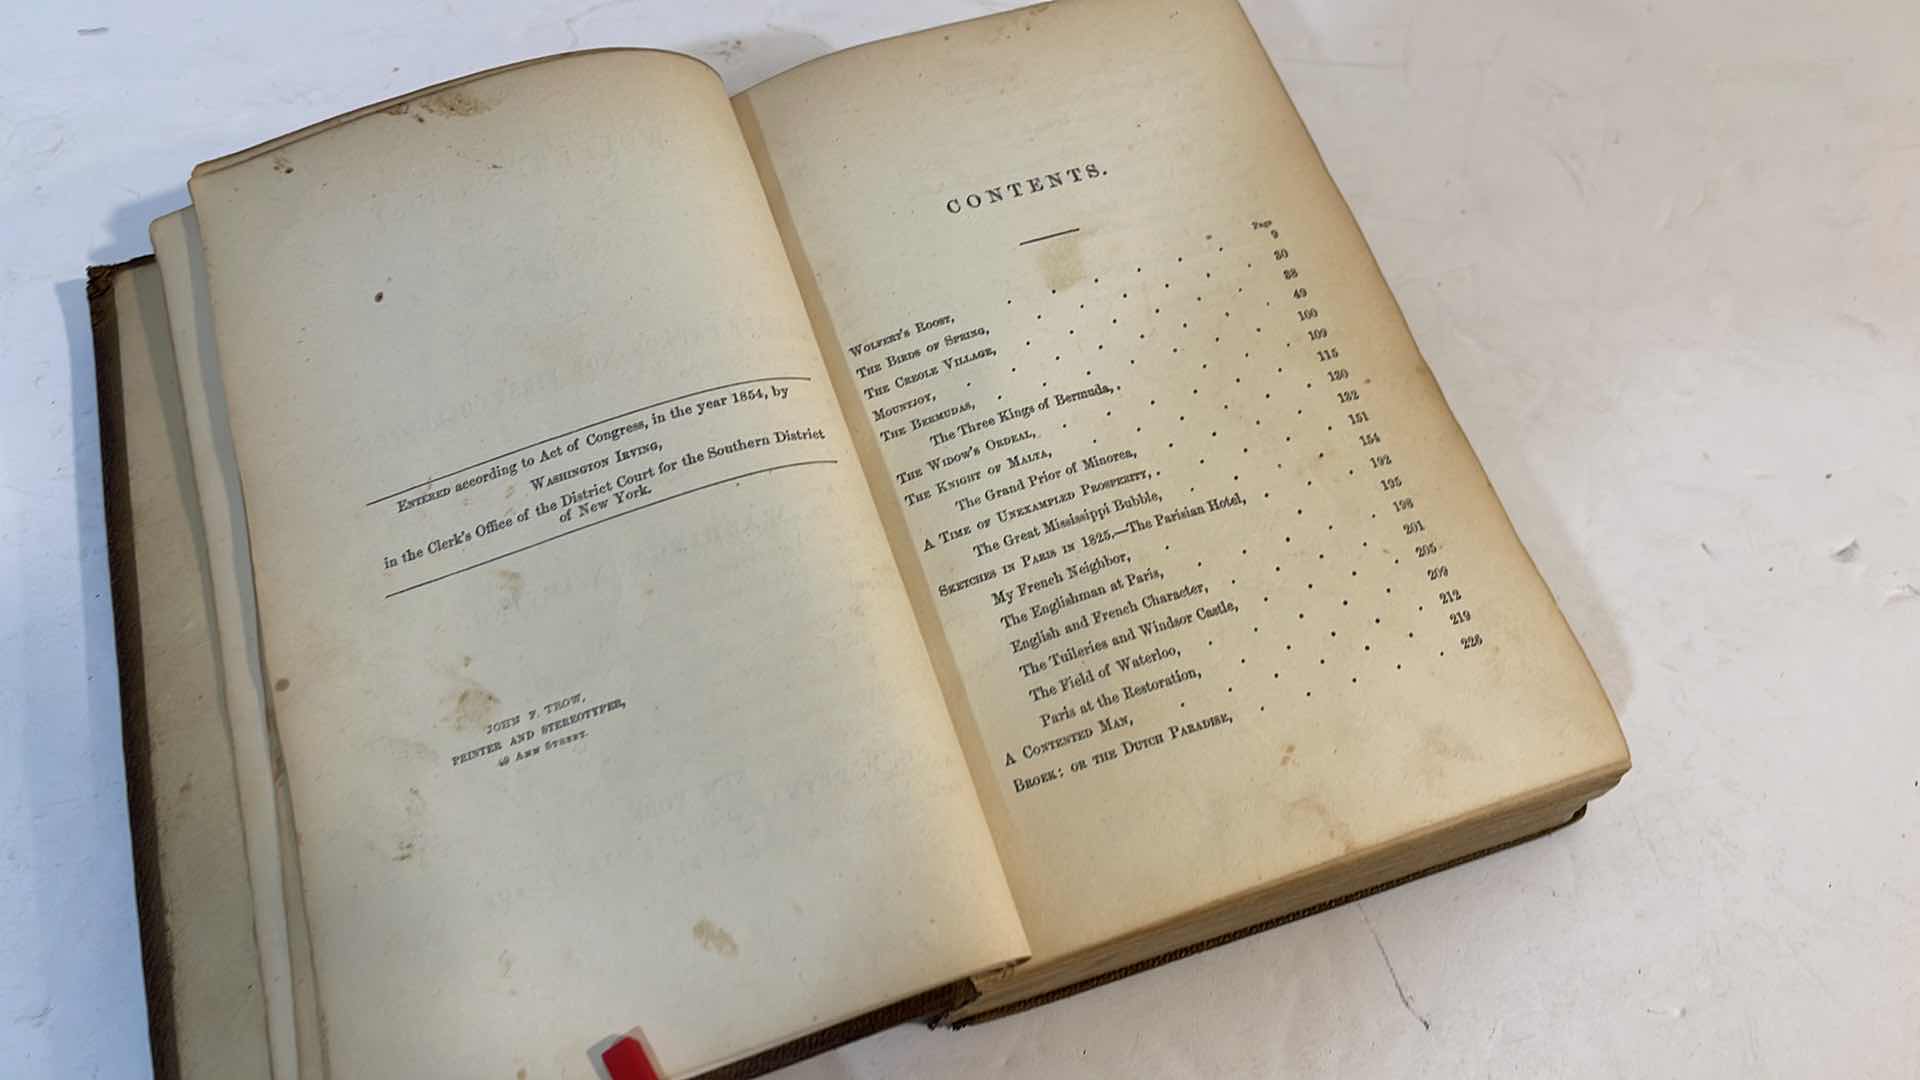 ENTERED according to Act of Congress, in the year 1854, by
WASHINGTON IRVING,
in the Clerk's Office of the District Court for the Southern District
of New York.
JOHN F. TROW,
PRINTER AND STEREOTYPER,
49 ANN STREET.
CONTENTS.
Page
WOLFERT'S ROOST, . . . . . . 9
THE BIRDS OF SPRING, . . . . . . 30
THE CREOLE VILLAGE, . . . . . . 38
MOUNTJOY, . . . . . . 49
THE BERMUDAS, . . . . . . 100
The Three Kings of Bermuda, . . . . . . 109
THE WIDOW'S ORDEAL, . . . . . . 115
THE KNIGHT OF MALTA, . . . . . . 130
The Grand Prior of Minorca, . . . . . . 132
A TIME OF UNEXAMPLED PROSPERITY, . . . . . 151
The Great Mississippi Bubble, . . . . . 154
SKETCHES IN PARIS IN 1825.—The Parisian Hotel, . . . 192
My French Neighbor, . . . . . . 195
The Englishman at Paris, . . . . . 198
English and French Character, . . . . . 201
The Tuileries and Windsor Castle, . . . . 205
The Field of Waterloo, . . . . . 209
Paris at the Restoration, . . . . . 212
A CONTENTED MAN, . . . . . . 219
BROEK: OR THE DUTCH PARADISE, . . . . . 226